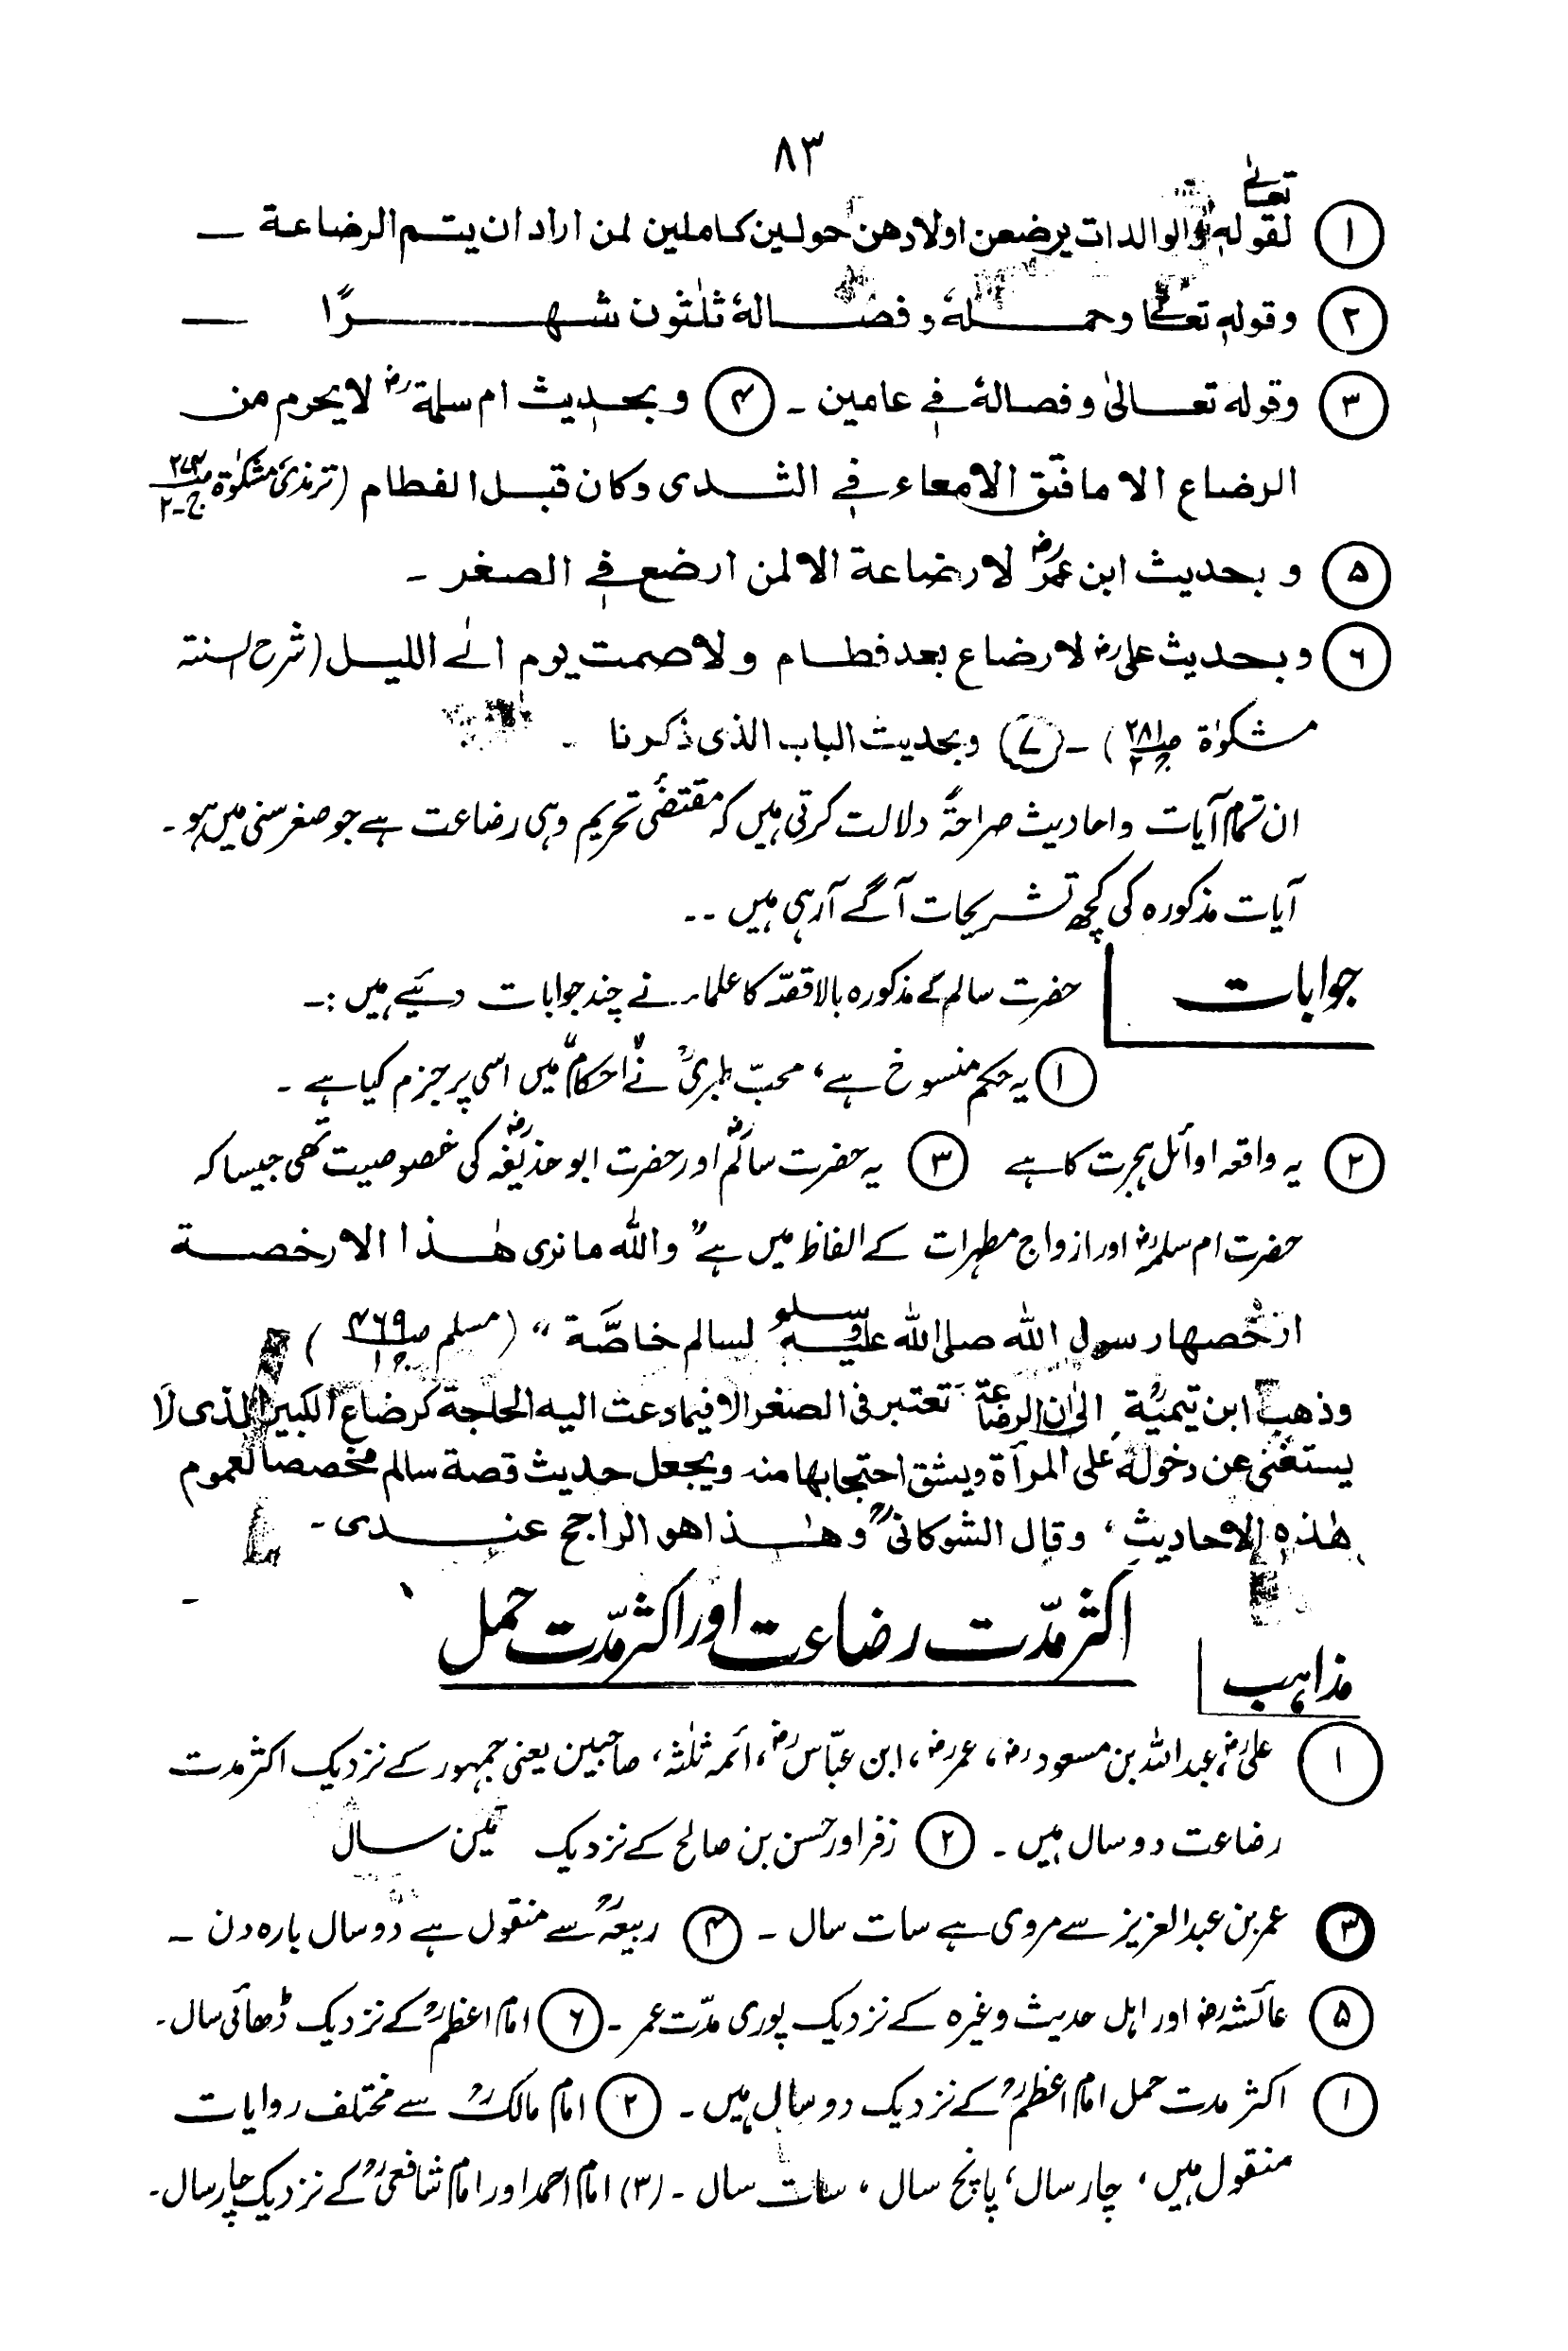 ۸۳
① لقولہٖ تعالےٰ والوالدات یرضعن اولادھن حولین کاملین لمن اراد ان یتم الرضاعة ــ
② وقولہٖ تعالےٰ وحملہٗ و فصالہٗ ثلٰثون شھرًا ــ
③ وقولہ تعالیٰ و فصالہٗ فی عامین ۔ ④ و بحدیث ام سلمةؓ لا یحرم من
الرضاع الا ما فتق الامعاء فی الثدی وکان قبل الفطام (ترمذی، مشکوٰة ص۲۷۴ ج۔۲
⑤ و بحدیث ابن عمرؓ لا رضاعة الا لمن ارضع فی الصغر ۔
⑥ و بحدیث علیؓ لا رضاع بعد فطام و لا صمت یوم الی اللیل (شرح السنتہ
مشکوٰة ص۲۸۱ ج۲) ۔ ⑦ وبحدیث الباب الذی ذکرنا ۔
ان تمام آیات و احادیث صراحۃً دلالت کرتی ہیں کہ مقتضیٔ تحریم وہی رضاعت ہے جو صغر سنی میں ہو ۔
آیات مذکورہ کی کچھ تشریحات آگے آرہی ہیں ۔۔
جوابات | حضرت سالم کے مذکورہ بالا قصّہ کا علماء نے چند جوابات دئیے ہیں :۔
① یہ حکم منسوخ ہے، محبّ طبریؒ نے "احکام" میں اسی پر جزم کیا ہے ۔
② یہ واقعہ اوائل ہجرت کا ہے ③ یہ حضرت سالمؓ اور حضرت ابو حذیفہؓ کی خصوصیت تھی جیسا کہ
حضرت ام سلمہؓ اور ازواج مطہرات کے الفاظ میں ہے" واللّٰه ما نری ھٰذا الا رخصة
ارخصھا رسول اللّٰه صلی اللّٰه علیہ وسلم لسالم خاصَّة " (مسلم ص۴۶۹ ج۱)
وذھب ابن تیمیةؒ الیٰ ان الرضاعة تعتبر فی الصغر الا فیما دعت الیه الحاجة کرضاع الکبیر الذی لا
یستغنی عن دخولہٗ علی المرآة ویشق احتجابھا منه ویجعل حدیث قصة سالم مخصصا لعموم
ھٰذہٖ الاحادیث، وقال الشوکانیؒ وھٰذا ھو الراجح عندی ۔
اکثر مدّت رضاعت اور اکثر مدّت حمل
مذاہب
① علیؓ، عبداللہ بن مسعودؓ، عمرؓ، ابن عبّاسؓ، ائمہ ثلٰثہ، صاحبین یعنی جمہور کے نزدیک اکثر مدت
رضاعت دو سال ہیں ۔ ② زفر اور حسن بن صالح کے نزدیک تین سال
③ عمر بن عبدالعزیز سے مروی ہے سات سال ۔ ④ ربیعہؒ سے منقول ہے دو سال بارہ دن ۔
⑤ عائشہؓ اور اہل حدیث وغیرہ کے نزدیک پوری مدّت عمر ۔ ⑥ امام اعظمؒ کے نزدیک ڈھائی سال ۔
① اکثر مدت حمل امام اعظمؒ کے نزدیک دو سال ہیں ۔ ② امام مالکؒ سے مختلف روایات
منقول ہیں، چار سال، پانچ سال، سات سال ۔ (۳) امام احمد اور امام شافعیؒ کے نزدیک چار سال ۔